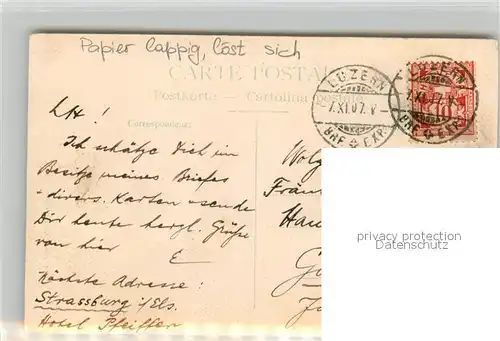 Papier lappig, löst sich
CARTE POSTALE
Postkarte - Cartolina postale
Correspondenz:
LUZERN
7.XI.07.V-
BRF. EXP.
LUZERN
7.XI.07.V-
BRF. EXP.
LH!
Ich schätze Dich im
Besitze meines Briefes
+ divers. Karten + sende
Dir heute herzl. Grüße
von hier
E
Nächste Adresse:
Strassburg i/Els.
Hotel Pfeiffer
Wolg
Fräu
Hau
privacy protection
Datenschutz